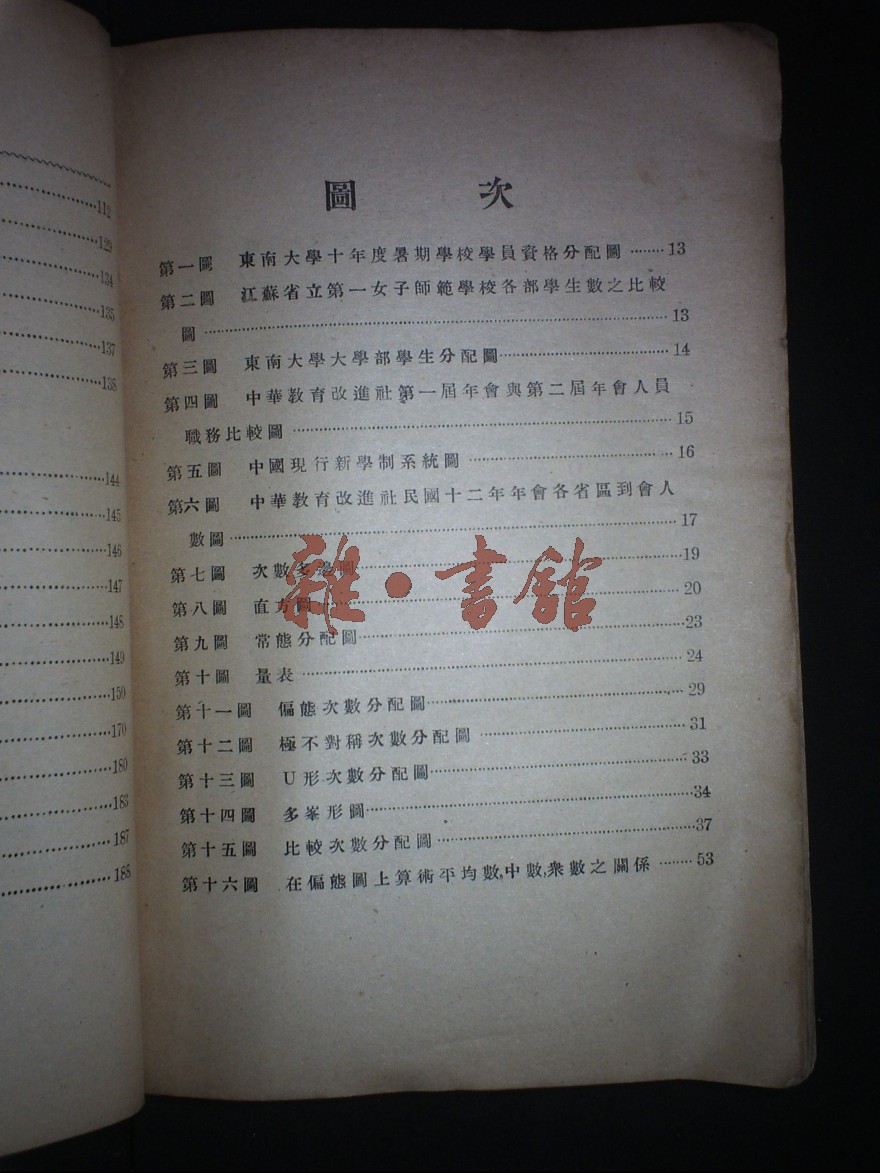 112
129
134
135
137
138
144
145
146
147
148
149
150
170
180
183
187
188
圖 次
第一圖 東南大學十年度暑期學校學員資格分配圖 ········13
第二圖 江蘇省立第一女子師範學校各部學生數之比較
圖 ········13
第三圖 東南大學大學部學生分配圖········14
第四圖 中華教育改進社第一屆年會與第二屆年會人員
職務比較圖 ········15
第五圖 中國現行新學制系統圖 ········16
第六圖 中華教育改進社民國十二年年會各省區到會人
數圖········17
第七圖 次數多邊圖········19
第八圖 直方圖········20
第九圖 常態分配圖········23
第十圖 量表········24
第十一圖 偏態次數分配圖········29
第十二圖 極不對稱次數分配圖 ········31
第十三圖 U形次數分配圖········33
第十四圖 多峯形圖········34
第十五圖 比較次數分配圖········37
第十六圖 在偏態圖上算術平均數,中數,衆數之關係 ········53
雜·書館